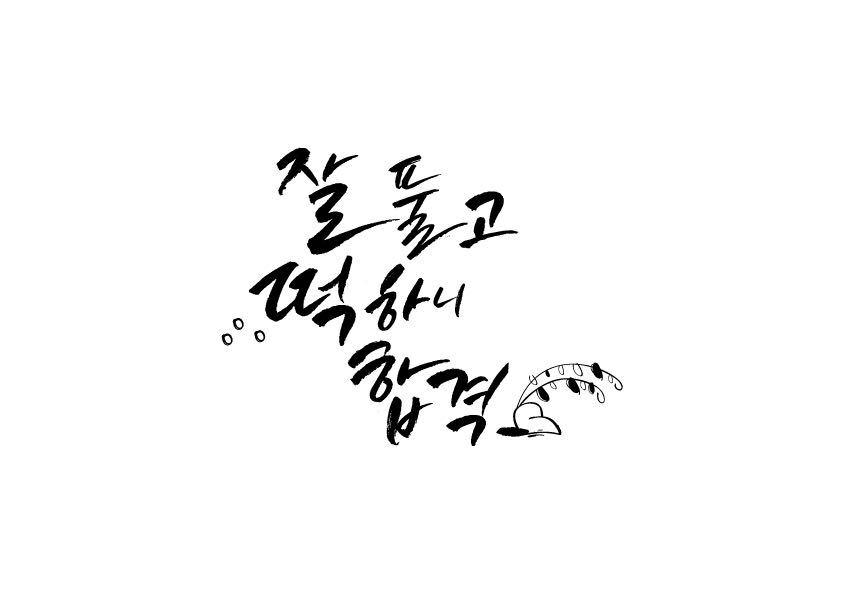 잘 풀고
떡 하니
합격